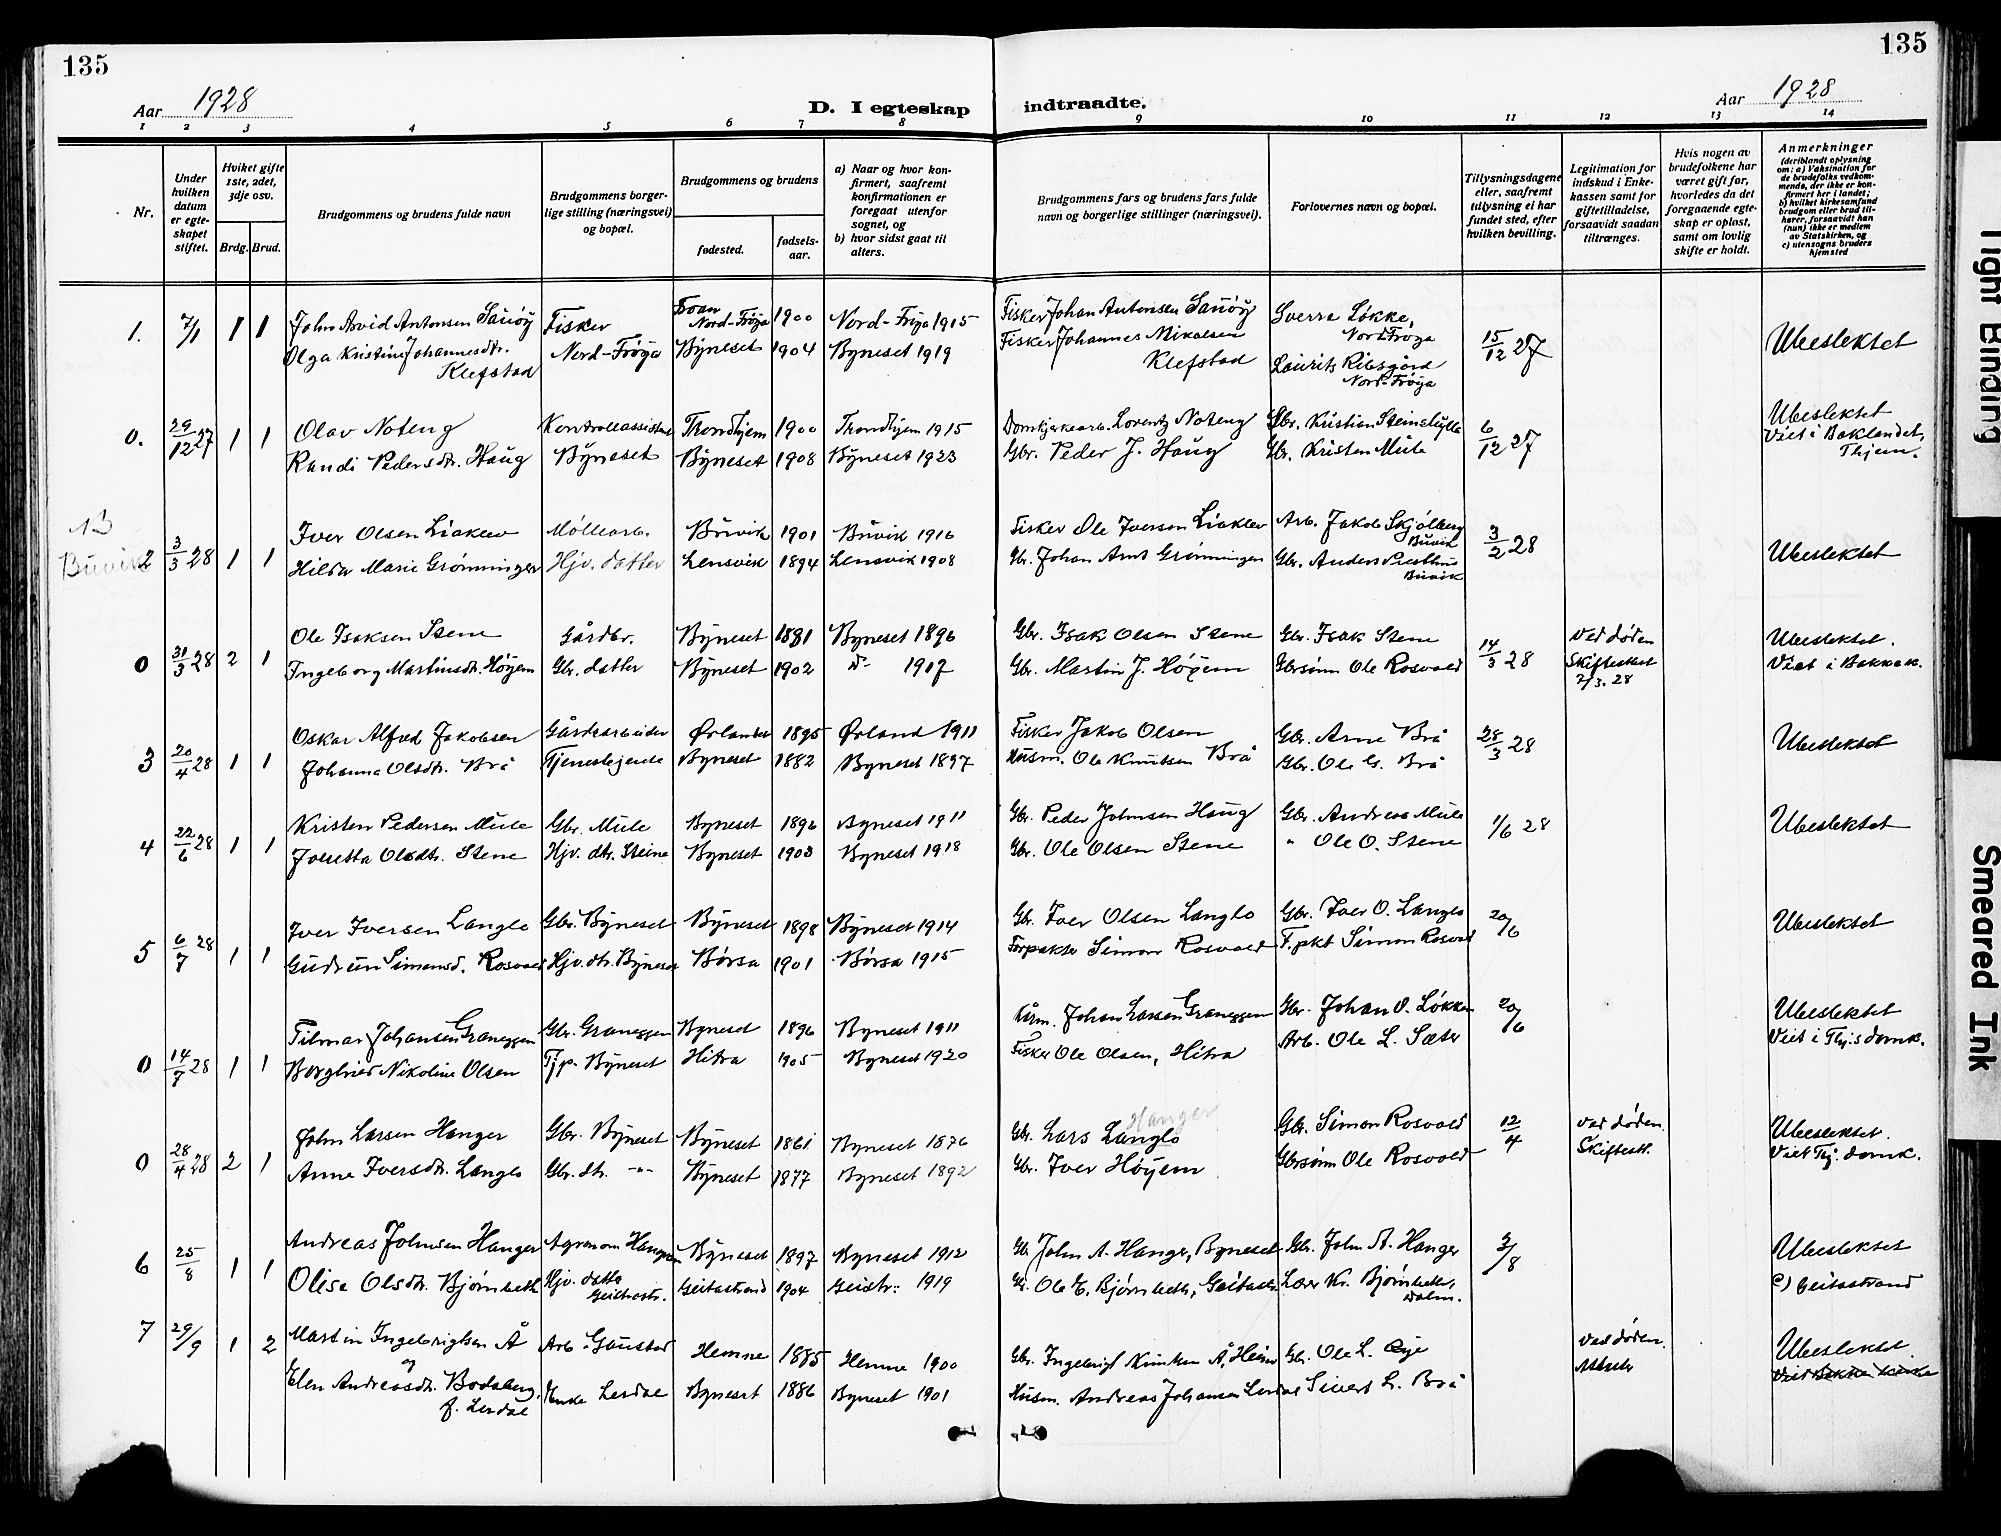 135
135
Aar 1928
D. I egteskap indtraadte.
Aar 1928
1 2 3 4 5 6 7 8 9 10 11 12 13 14
Nr.
Under hvilken datum er egteskapet stiftet.
Hviket gifte 1ste, 2det, 3dje osv.
Brdg. Brud.
Brudgommens og brudens fulde navn
Brudgommens borgerlige stilling (næringsvei) og bopæl.
Brudgommens og brudens
fødested.
fødselsaar.
a) Naar og hvor konfirmert, saafremt konfirmationen er foregaat utenfor sognet, og
b) hvor sidst gaat til alters.
Brudgommens fars og brudens fars fulde navn og borgerlige stillinger (næringsvei).
Forlovernes navn og bopæl.
Tillysningsdagene eller, saafremt tillysning ei har fundet sted, efter hvilken bevilling.
Legitimation for indskud i Enkekassen samt for giftetilladelse, forsaavidt saadan tiltrænges.
Hvis nogen av brudefolkene har været gift før, hvorledes da det foregaaende egteskap er opløst, samt om lovlig skifte er holdt.
Anmerkninger
(deriblandt oplysning om: a) Vaksination for de brudefolks vedkommende, der ikke er konfirmert her i landet; b) hvilket kirkesamfund brudgom eller brud tilhører, forsaavidt han (hun) ikke er medlem av Statskirken, og c) utensogns bruders hjemsted
1. 7/1 1 1 John Arvid Antonsen Sauøy Fisker Froan Nord-Frøya 1900 Nord-Frøya 1915 Fisker Johan Antonsen Sauøy Sverre Løkke, Nord-Frøya 15/12 27 Ubeslektet
Olga Kristine Johannesdtr. Klefstad Nord-Frøya Byneset 1904 Byneset 1919 Fisker Johannes Nikolsen Klefstad Laurits Ribsgård Nord-Frøya
0. 29/12 27 1 1 Olav Noteng Kontrollassistent Trondhjem 1900 Trondhjem 1915 Domkirkearb. Lorentz Noteng Gbr. Kristian Steinshylla 6/12 27 Ubeslektet
Randi Pedersdtr. Haug Byneset Byneset 1908 Byneset 1923 Gbr. Peder J. Haug Gbr. Kristen Mule Viet i Baklandet, Thjem.
NB Buvik
2 3/3 28 1 1 Iver Olsen Liaklev Møllearb. Buvik 1901 Buvik 1916 Fisker Ole Iversen Liaklev Arb. Jakob Skjølberg Buvik 3/2 28 Ubeslektet
Hilda Marie Grønninger Hjv. datter Lensvik 1894 Lensvik 1908 Gbr. Johan Arnt Grønningen Gbr. Anders Presthus Buvik
0 31/3 28 2 1 Ole Isaksen Stene Gårdbr. Byneset 1881 Byneset 1896 Gbr. Isak Olsen Stene Gbr. Isak Stene 14/3 28 Ved døden Ubeslektet.
Ingeborg Martinsdtr. Høyem Gbr. datter Byneset 1902 do 1917 Gbr. Martin J. Høyem Gbrsønn Ole Rosvold Skifteattest 2/3. 28 Viet i Bakkek.
3 20/4 28 1 1 Oskar Alfred Jakobsen Gårdsarbeider Ørlandet 1895 Ørland 1911 Fisker Jakob Olsen Gbr. Arne Brå 28/3 28 Ubeslektet
Johanna Olsdtr. Brå Tjenestejente Byneset 1882 Byneset 1897 Husm. Ole Knutsen Brå Gbr. Ole G. Brå
4 22/6 28 1 1 Kristen Pedersen Mule Gbr. Mule Byneset 1896 Byneset 1911 Gbr. Peder Johnsen Haug Gbr. Andreas Mule 1/6 28 Ubeslektet
Olsdtr. Stene Hjv. dtr. Steine Byneset 1903 Byneset 1918 Gbr. Ole Olsen Stene " Ole O. Stene
5 6/7 28 1 1 Iver Iversen Langlo Gbr. Byneset Byneset 1898 Byneset 1914 Gbr. Iver Olsen Langlo Gbr. Iver O. Langlo 20/6 Ubeslektet
Gudrun Simonsd. Rosvold Hjv. dtr. Byneset Børsa 1901 Børsa 1915 Forpakter Simon Rosvold F.pkt Simon Rosvold
0 14/7 28 1 1 Tilmar Johansen Graneggen Gbr. Graneggen Byneset 1896 Byneset 1911 Johan Larsen Graneggen Gbr. Johan O. Løkken 20/6 Ubeslektet
Borghild Nikoline Olsen Tjp. Byneset Hitra 1905 Byneset 1920 Fisker Ole Olsen, Hitra Arb. Ole L. Sæter Viet i Thj.s domk.
0 28/4 28 2 1 John Larsen Hanger Gbr. Byneset Byneset 1861 Byneset 1876 Gbr. Lars Langlo Hanger Gbr. Simon Rosvold 12/4 Ved døden. Ubeslektet.
Anne Iversdtr. Langlo Gbr. dtr. -"- Byneset 1877 Byneset 1892 Gbr. Iver Høyem Gbrsønn Ole Rosvold Skifteatt. Viet Thj. domk.
6 25/8 1 1 Andreas Johnsen Hanger Agronom Hangran Byneset 1897 Byneset 1912 Gb. John A. Hanger, Byneset Gbr. John A. Hanger 3/8 Ubeslektet
Olise Olsdtr. Bjørnbeth Hjv. datter Geitastr. Geitastrand 1904 Geistr: 1919 Gb. Ole E. Bjørnbeth, Geitastr. Lærer Kr. Bjørnbeth, c) Geitastrand
7 29/9 1 2 Martin Ingebrigtsen Å Arb. Gaustad Hemne 1885 Hemne 1900 Gbr. Ingebrigt Knutsen Å, Heim Gbr. Ole L. Øye Ved døden. Attest Ubeslektet.
og
Elen Andreasdtr. Bodsberg. f. Lerdal Enke Lerdal Byneset 1886 Byneset 1901 Husm. Andreas Johansen Lerdal Sivert L. Brå Viet Bakke kirke
Tight Binding
Smeared Ink